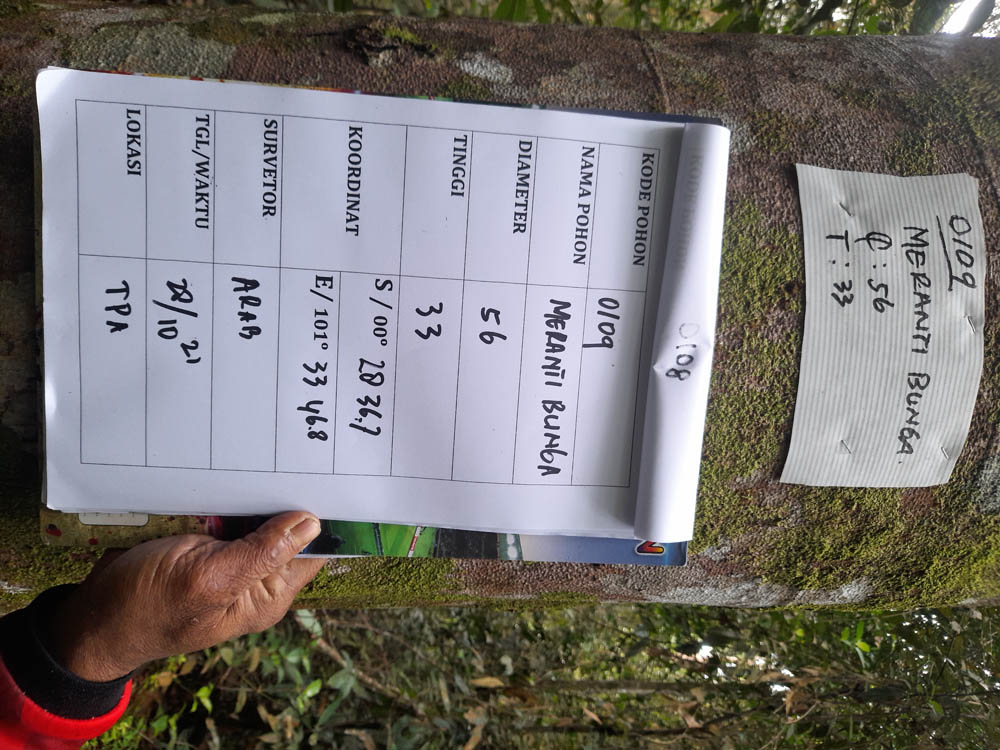 0109
MERANTI BUNGA.
₵ : 56
T : 33
0108
KODE POHON 0109
NAMA POHON MERANTI BUNGA
DIAMETER 56
TINGGI 33
KOORDINAT
S / 00° 28 36.7
E/ 101° 33 46.8
SURVETOR ARAB
TGL/WAKTU 28/10 21
LOKASI TPA